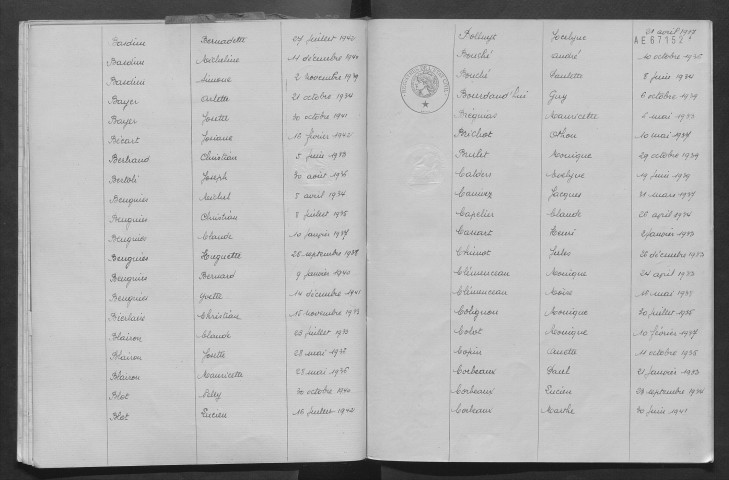 Bardiau Bernadette 27 juillet 1942
Bardiau Micheline 11 décembre 1940
Bardiau Simone 2 novembre 1939
Bayer Arlette 21 octobre 1934
Bayer Josette 30 octobre 1941
Bécart Josiane février 1942
Bertrand Christian 5 juin 1933
Bertoli Joseph 30 août 1935
Beugnies Michel 5 avril 1934
Beugnies Christian 5 juillet 1935
Beugnies Claude 10 janvier 1937
Beugnies Huguette septembre 1937
Beugnies Bernard 9 janvier 1940
Beugnies Yvette 14 décembre 1941
Christian novembre 1933
Blairon Claude juillet 1933
Blairon Josette mai 1935
Blairon Mauricette mai 1936
Blot octobre 1940
Blot Lucien 16 juillet 1942
Jocelyne avril 1937
AE 67152
Bouché André 10 octobre 1935
Bouché Paulette 5 juin 1934
Guy 6 octobre 1939
Mauricette mai 1933
Brichot Othon 10 mai 1937
Brulet Monique 29 octobre 1939
Evelyne 19 juin 1939
Jacques mars 1937
Capelier Claude avril 1934
Henri 2 janvier 1933
Jules décembre 1933
Clémenceau Monique 24 avril 1933
Clémenceau mai 1935
Colignon Monique 30 juillet 1935
Colot Monique 10 février 1937
Copin Annette 11 octobre 1935
Corbeaux Paul 21 janvier 1933
Corbeaux Lucien septembre 1934
Corbeaux Marthe 30 juin 1941